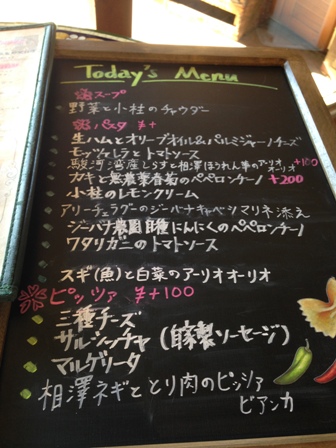 Today's Menu
※スープ
野菜と小柱のチャウダー
※パスタ ¥+
生ハムとオリーブオイル&パルミジャーノチーズ
モッツァレラとトマトソース
駿河湾産しらすと相澤ほうれん草のアーリオオーリオ +100
カキと無農薬春菊のペペロンチーノ +200
小柱のレモンクリーム
アリーチェラグーのジーバナキャベツマリネ添え
ジーバナ農園自種にんにくのペペロンチーノ
ワタリガニのトマトソース
スギ(魚)と白菜のアーリオオーリオ
※ピッツァ ¥+100
三種チーズ
サルシッチャ (自家製ソーセージ)
マルゲリータ
相澤ネギととり肉のピッツァ
ビアンカ